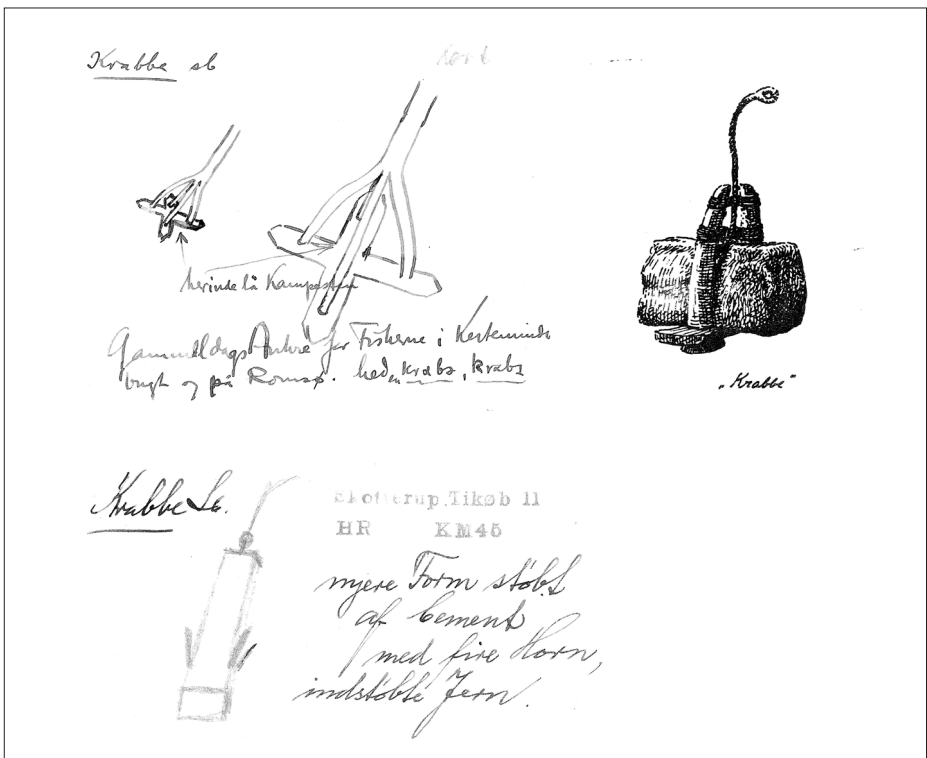 Krabbe sb
Kort
herinde lå Kampesten
Gammeldags Ankre for Fiskerne i Kerteminde
bugt og på Romsø. hed en krabs, krabs
„Krabbe”
Krabbe Sb.
Skotterup, Tikøb ll
HR KM45
nyere Form støbt
af Cement
med fire Horn,
indstøbte Jern.